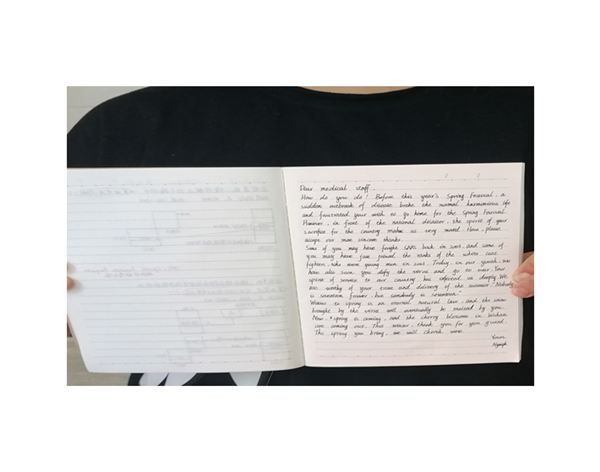 Dear medical staff,
How do you do! Before this year's Spring Festival, a
sudden outbreak of disease broke the normal harmonious life
and frustrated your wish to go home for the Spring Festival.
However, in front of the national disaster, the spirit of your
sacrifice for the country makes us very moved. Here, please
accept our most sincere thanks.
Some of you may have fought SARS back in 2003, and some of
you may have just joined the ranks of the white coat
fighters, like were young men in 2003. Today, in our youth, we
have also seen you defy the virus and go to war. Your
spirit of service to our country has infected us deeply. We
are worthy of your trust and delivery of the mission. Nobody
is seventeen forever but somebody is seventeen.
Winter to spring is an eternal natural law, and the snow
brought by the virus will eventually be melted by you.
Now, spring is coming, and the cherry blossoms in Wuhan
are coming out. This return, thank you for your guard.
The spring you bring, we will cherish more.
Yours,